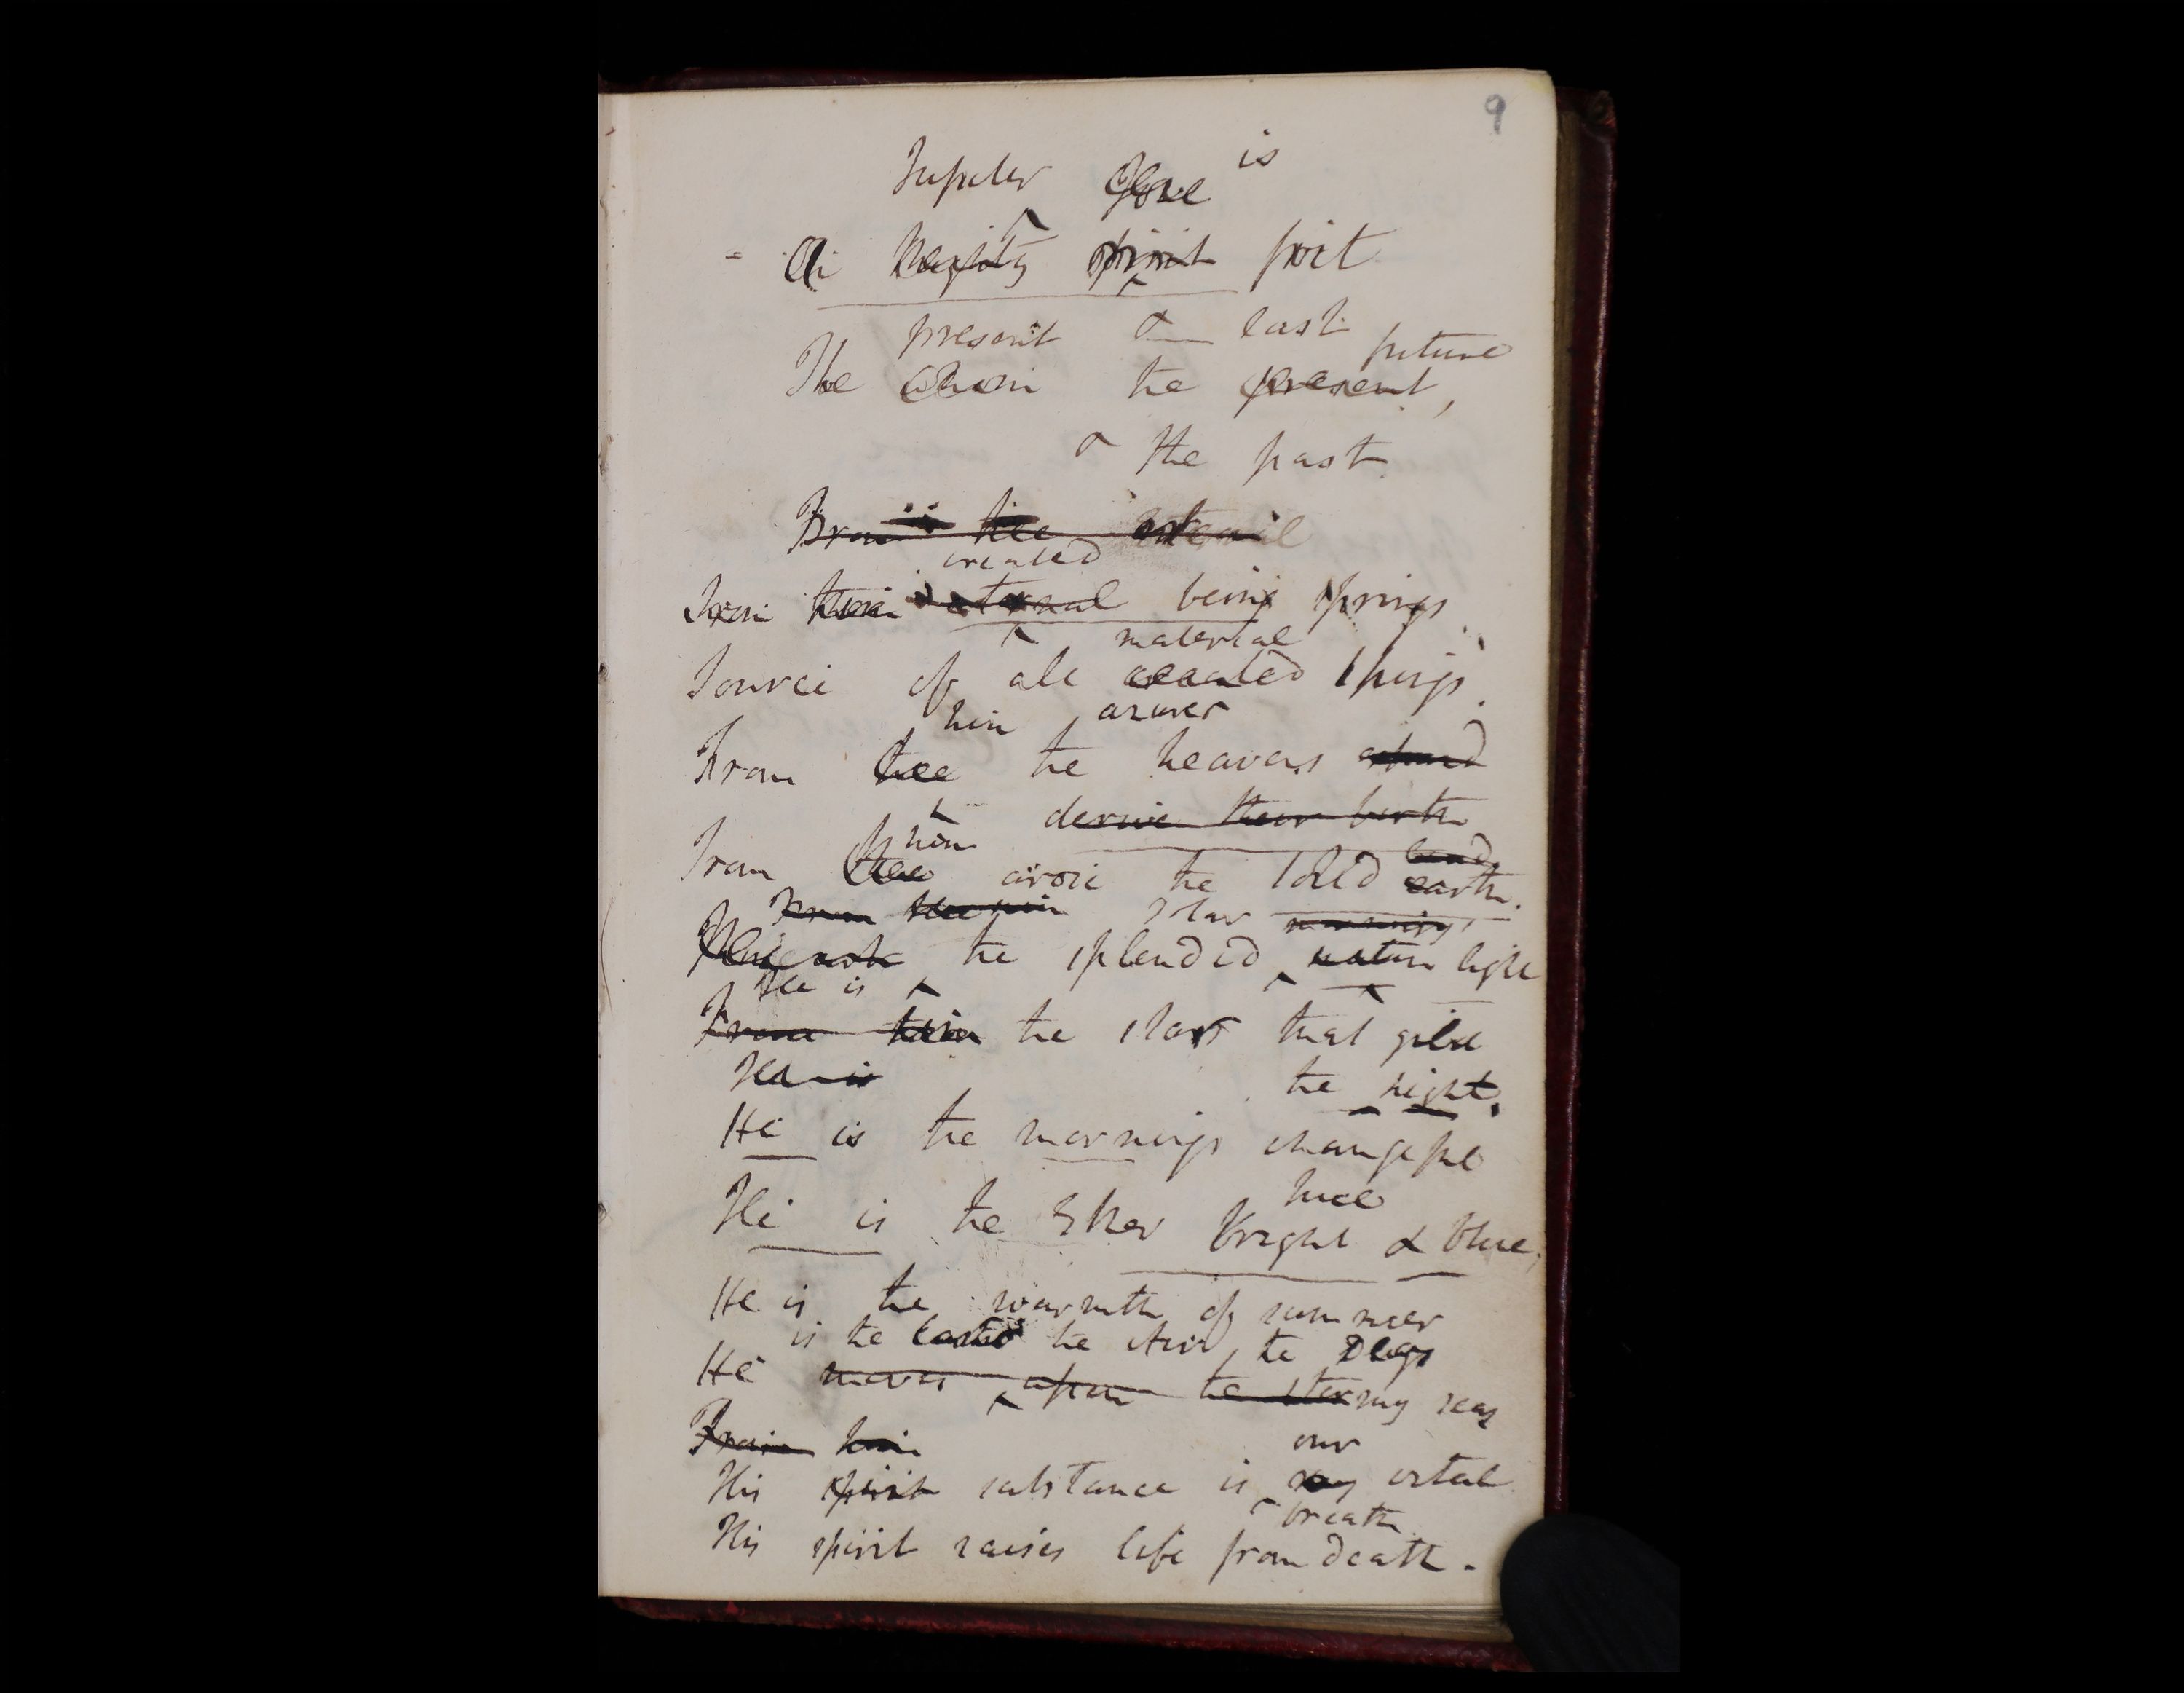 9
Jupiter Jove is
Oh mighty spirit first
present & last
future
The the present,
& the past
From thee eternal
created
From him eternal being springs
material
Source of all created things.
him azure
From thee the heavens
derive their birth
him
From thee arose the solid earth.
land
From star morning
the splendid nature light
He is
From him the stars that gild
He is the night.
He is the mornings changeful
hue
He is the Ether bright & blue,
He is the warmth of summer
is the the Air, the Deeps
He moves upon the stormy seas
From him our
His spirit substance is my vital
breath
His spirit raises life from death.